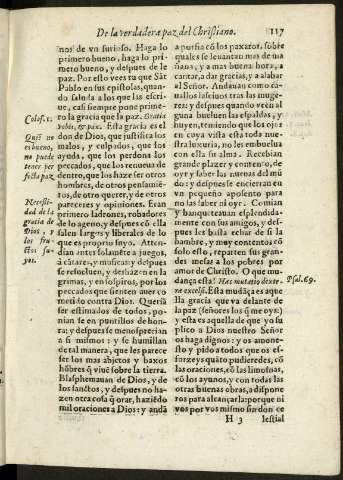 De la verdadera paz del Christiano. 117
nos de vn furioso. Haga lo
primero bueno, haga lo pri-
mero bueno, y despues de la
paz. Por esto vereys que Sāt
Pablo en sus epistolas, quan-
do saluda a los que las escri-
ue, casi siempre pone prime-
ro la gracia que la paz. Gratia
vobis, & pax. Esta gracia es el
don de Dios, que justifica los
malos, y culpados, que los
ayuda a que les perdona los
peccados, que los renueua de
dentro, que los haze ser otros
hombres, de otros pensamiē-
tos, de otro querer, y de otros
pareceres y opiniones. Eran
primero ladrones, robadores
de lo ageno, y despues cō ella
salen largos y liberales de lo
que es proprio suyo. Attēn-
dian antes solamēte a juegos,
a cātares, y musicas; y despues
se resoluen, y deshazen en la
grimas, y en sospiros, por los
peccados que sienten auer co
metido contra Dios. Queriā
ser estimados de todos, po-
nian se en puntillos de hon-
ra; y despues se menosprecian
a si mismos: y se humillan
de tal manera, que les parece
ser los mas abjetos y baxos
hōbres q̄ viuē sobre la tierra.
Blasphemauan de Dios, y de
los sanctos, y despues no ha-
zen otra cosa q̄ orar, haziēdo
mil oraciones a Dios: y andā
Colos. 1.
Quiē no
es bueno,
no puede
tener per
fecta paz.
Necessi-
dad de la
gracia de
Dios, y
los fru-
ctos su-
yos.
a porfia cō los paxaros, sobre
quales se leuantan mas de ma
ñana, y a mas buena hora, a
cantar, a dar gracias, y a alabar
al Señor. Andauan como ca-
uallos lasciuos tras las muge-
res: y despues quando veen al
guna bueluen las espaldas, y
huyen, temiendo que los ojos
en cuya vista esta toda nue-
stra luxuria, no les embuelua
con ella su alma. Recebian
grande plazer y contento, de
oyr y saber las nueuas del mū
do: y despues se encierran en
vn pequeño aposento para
no las saber ni oyr. Comian
y banqueteauan esplendida-
mente con sus amigos, y des-
pues les basta echar de si la
hambre, y muy contentos cō
solo esto, reparten sus gran-
des mesas a los pobres por
amor de Christo. O que mu-
dança esta! Hæc mutatio dexte-
ræ excelsi. Esta mudāça es aque
lla gracia que va delante de
la paz (señores los q̄ me oys:)
y esta es aquella de que yo su
plico a Dios nuestro Señor
os haga dignos: y os amone-
sto y pido a todos que os es-
forzeys quāto pudieredes, cō
las oraciones, cō las limosnas,
cō los ayunos, y con todas las
otras buenas obras, a dispone
ros para alcançarla: porque ni
vos por vos mismo sin don ce
Psal. 69.
H 3 lestial